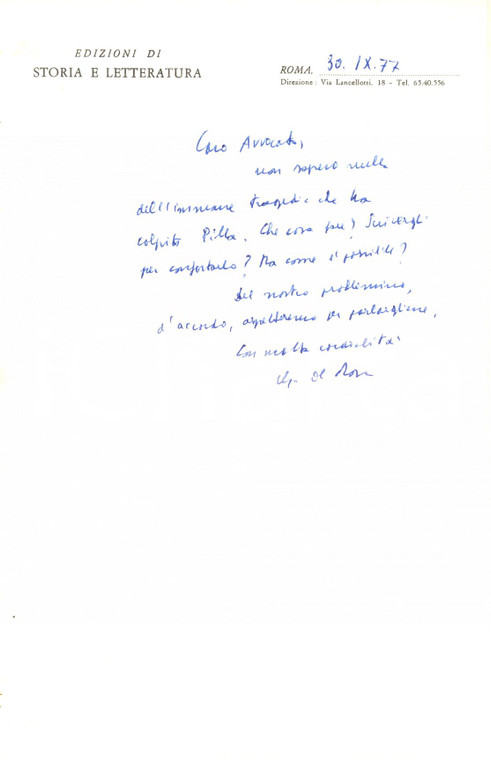 EDIZIONI DI
STORIA E LETTERATURA
ROMA, 30. IX. 77
Direzione: Via Lancellotti, 18 - Tel. 65.40.556
Caro Avvocato,
non sapevo nulla
dell'immane tragedia che ha
colpito Pilla. Che cosa fare? Scrivergli
per confortarlo? Ma come è possibile?
Del nostro problemino,
d'accordo, aspetteremo per parlargliene.
Con molta cordialità
De Rosa